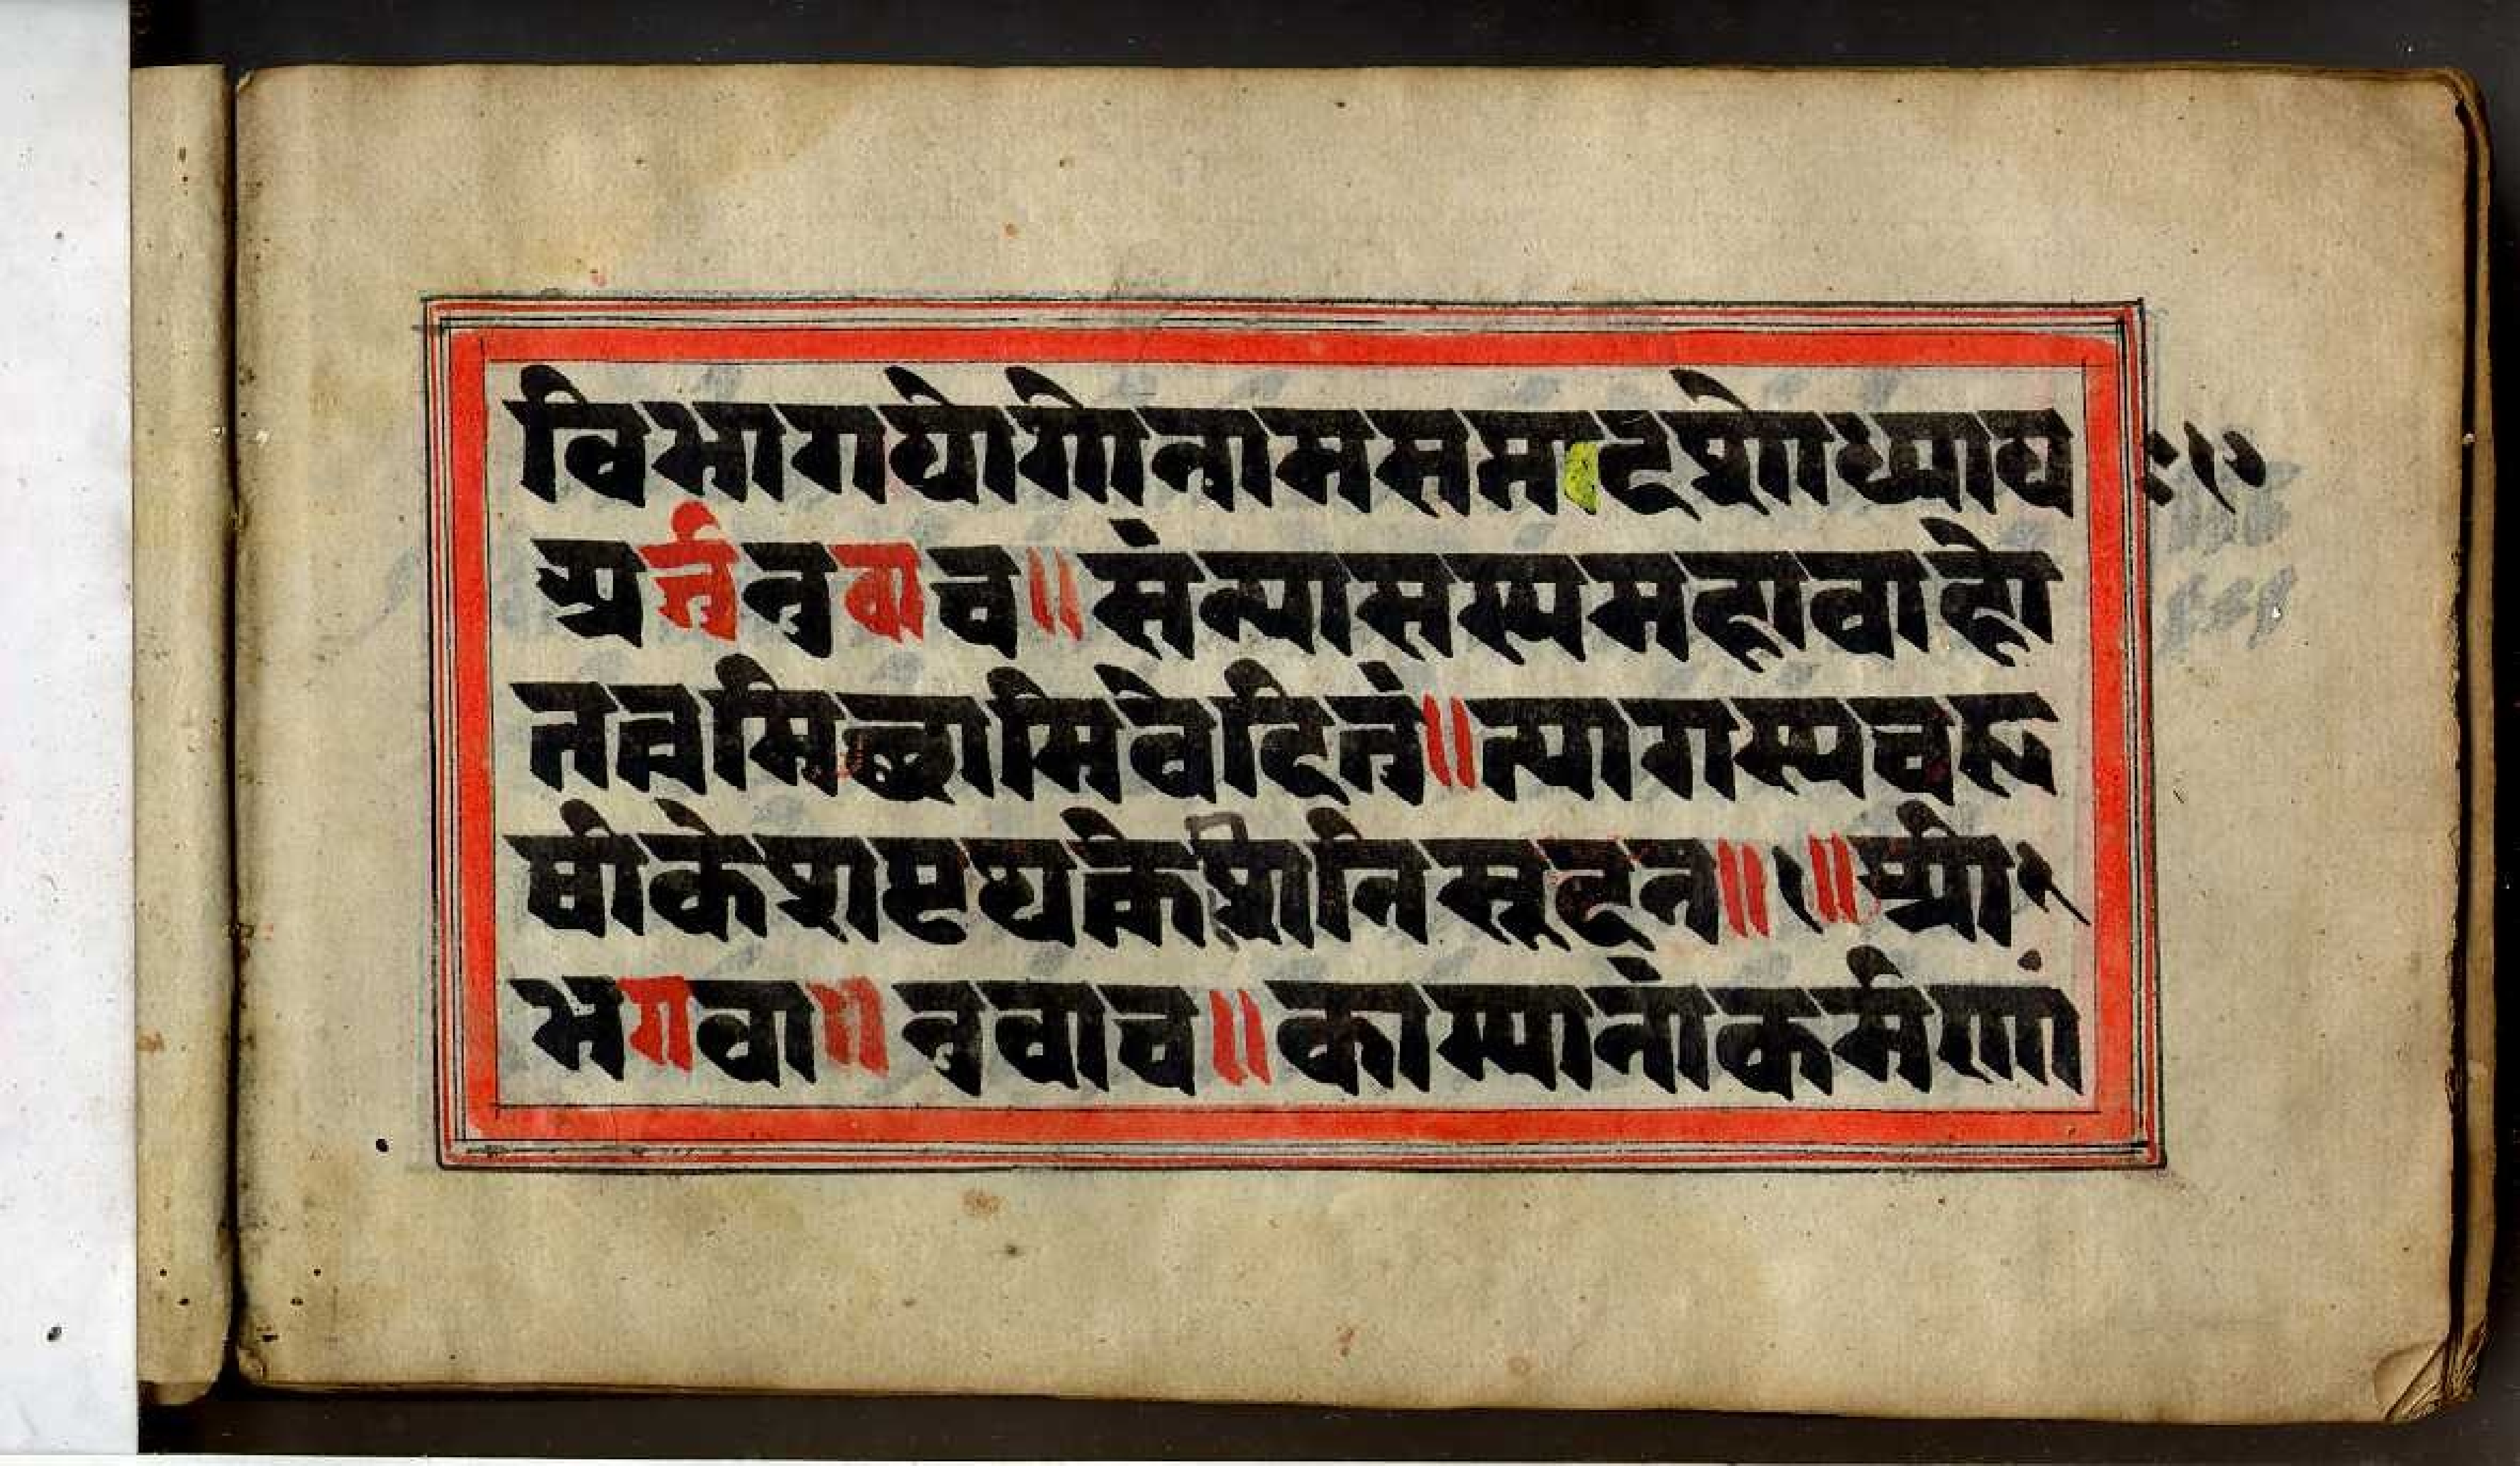 विभागयोगोनामसप्तदशोध्याय ः१७
अर्जुनउवाच॥संन्यासस्यमहाबाहो
तत्त्वमिच्छामिवेदितुं॥त्यागस्यचहृ
षीकेशपृथक्केशिनिसूदन॥१॥श्री
भगवानुवाच॥काम्यानांकर्मणां